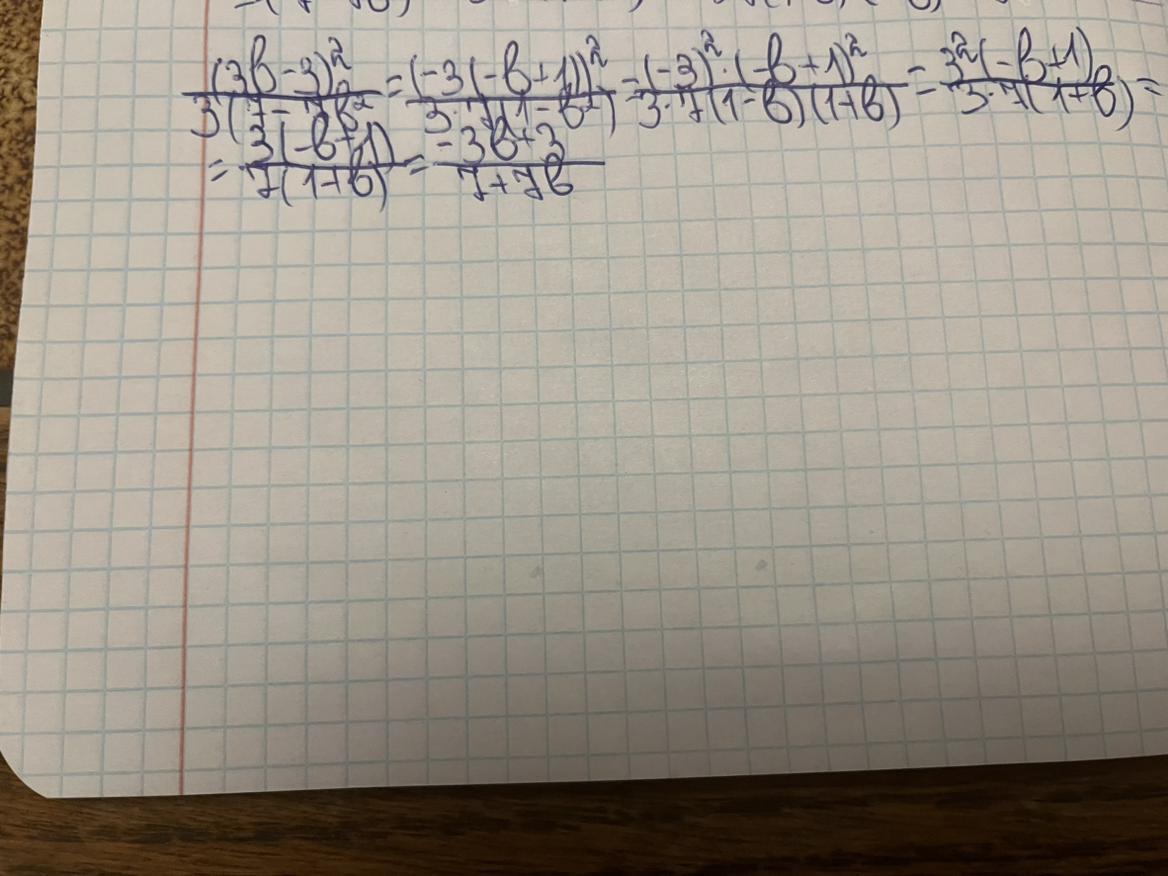 (3b-3)²/3(7-7b²) = (-3(-b+1))²/3·7(1-b²) = (-3)²·(-b+1)²/3·7(1-b)(1+b) = 3²(-b+1)/3·7(1+b) =
= 3(-b+1)/7(1+b) = -3b+3/7+7b